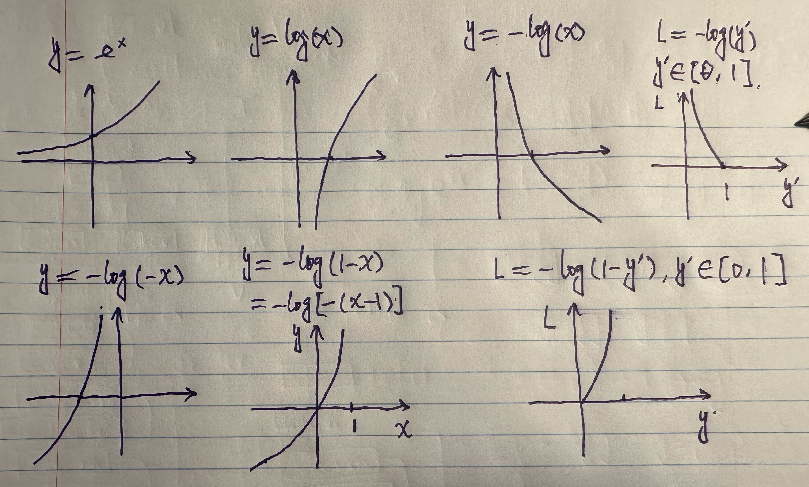 y = e^x
y = log(x)
y = -log(x)
L = -log(y')
y' ∈ [0, 1].
L
1
y'
y = -log(-x)
y = -log(1-x)
= -log[-(x-1)]
y
1
x
L = -log(1-y'), y' ∈ [0, 1]
L
y'